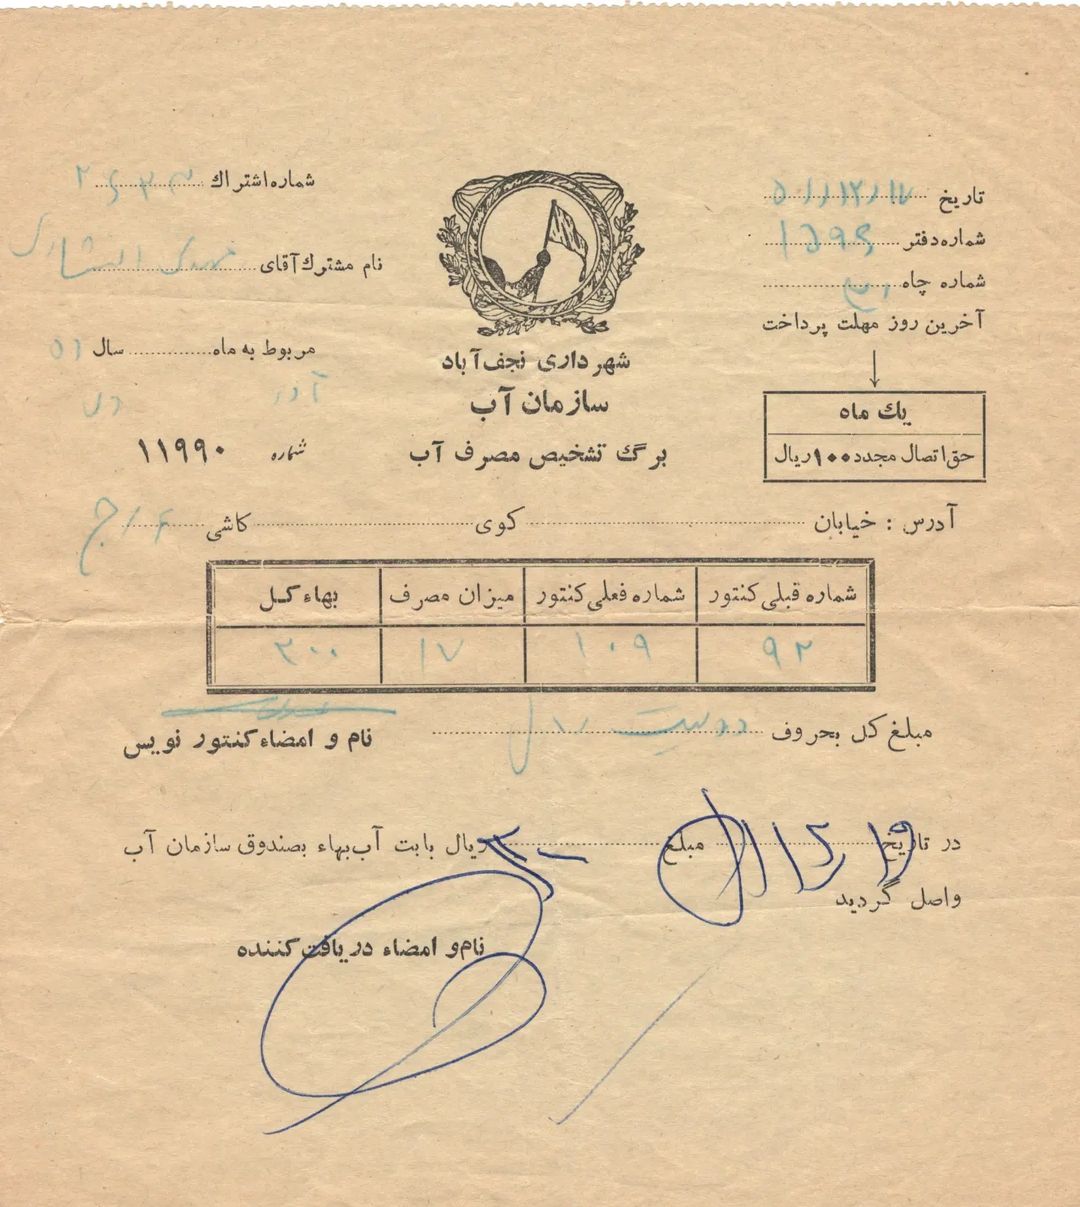 تاریخ ۵۱/۱۲/۱۷
شماره دفتر ۱۵۹۶
شماره چاه
آخرین روز مهلت پرداخت
یك ماه
حق اتصال مجدد ۱۰۰ ریال
شهرداری نجف‌آباد
سازمان آب
برگ تشخیص مصرف آب
شماره اشتراك
نام مشترك آقای
مربوط به ماه سال ۵۱
آذر دی
شماره ۱۱۹۹۰
آدرس : خیابان کوی کاشی
شماره قبلی کنتور شماره فعلی کنتور میزان مصرف بهاء کل
۹۲ ۱۰۹ ۱۷ ۲۰۰
مبلغ کل بحروف دویست ریال
نام و امضاء کنتور نویس
در تاریخ ۱۹/۱۲/۵۱ مبلغ ۲۰۰ ریال بابت آب‌بهاء بصندوق سازمان آب
واصل گردید
نام و امضاء دریافت کننده